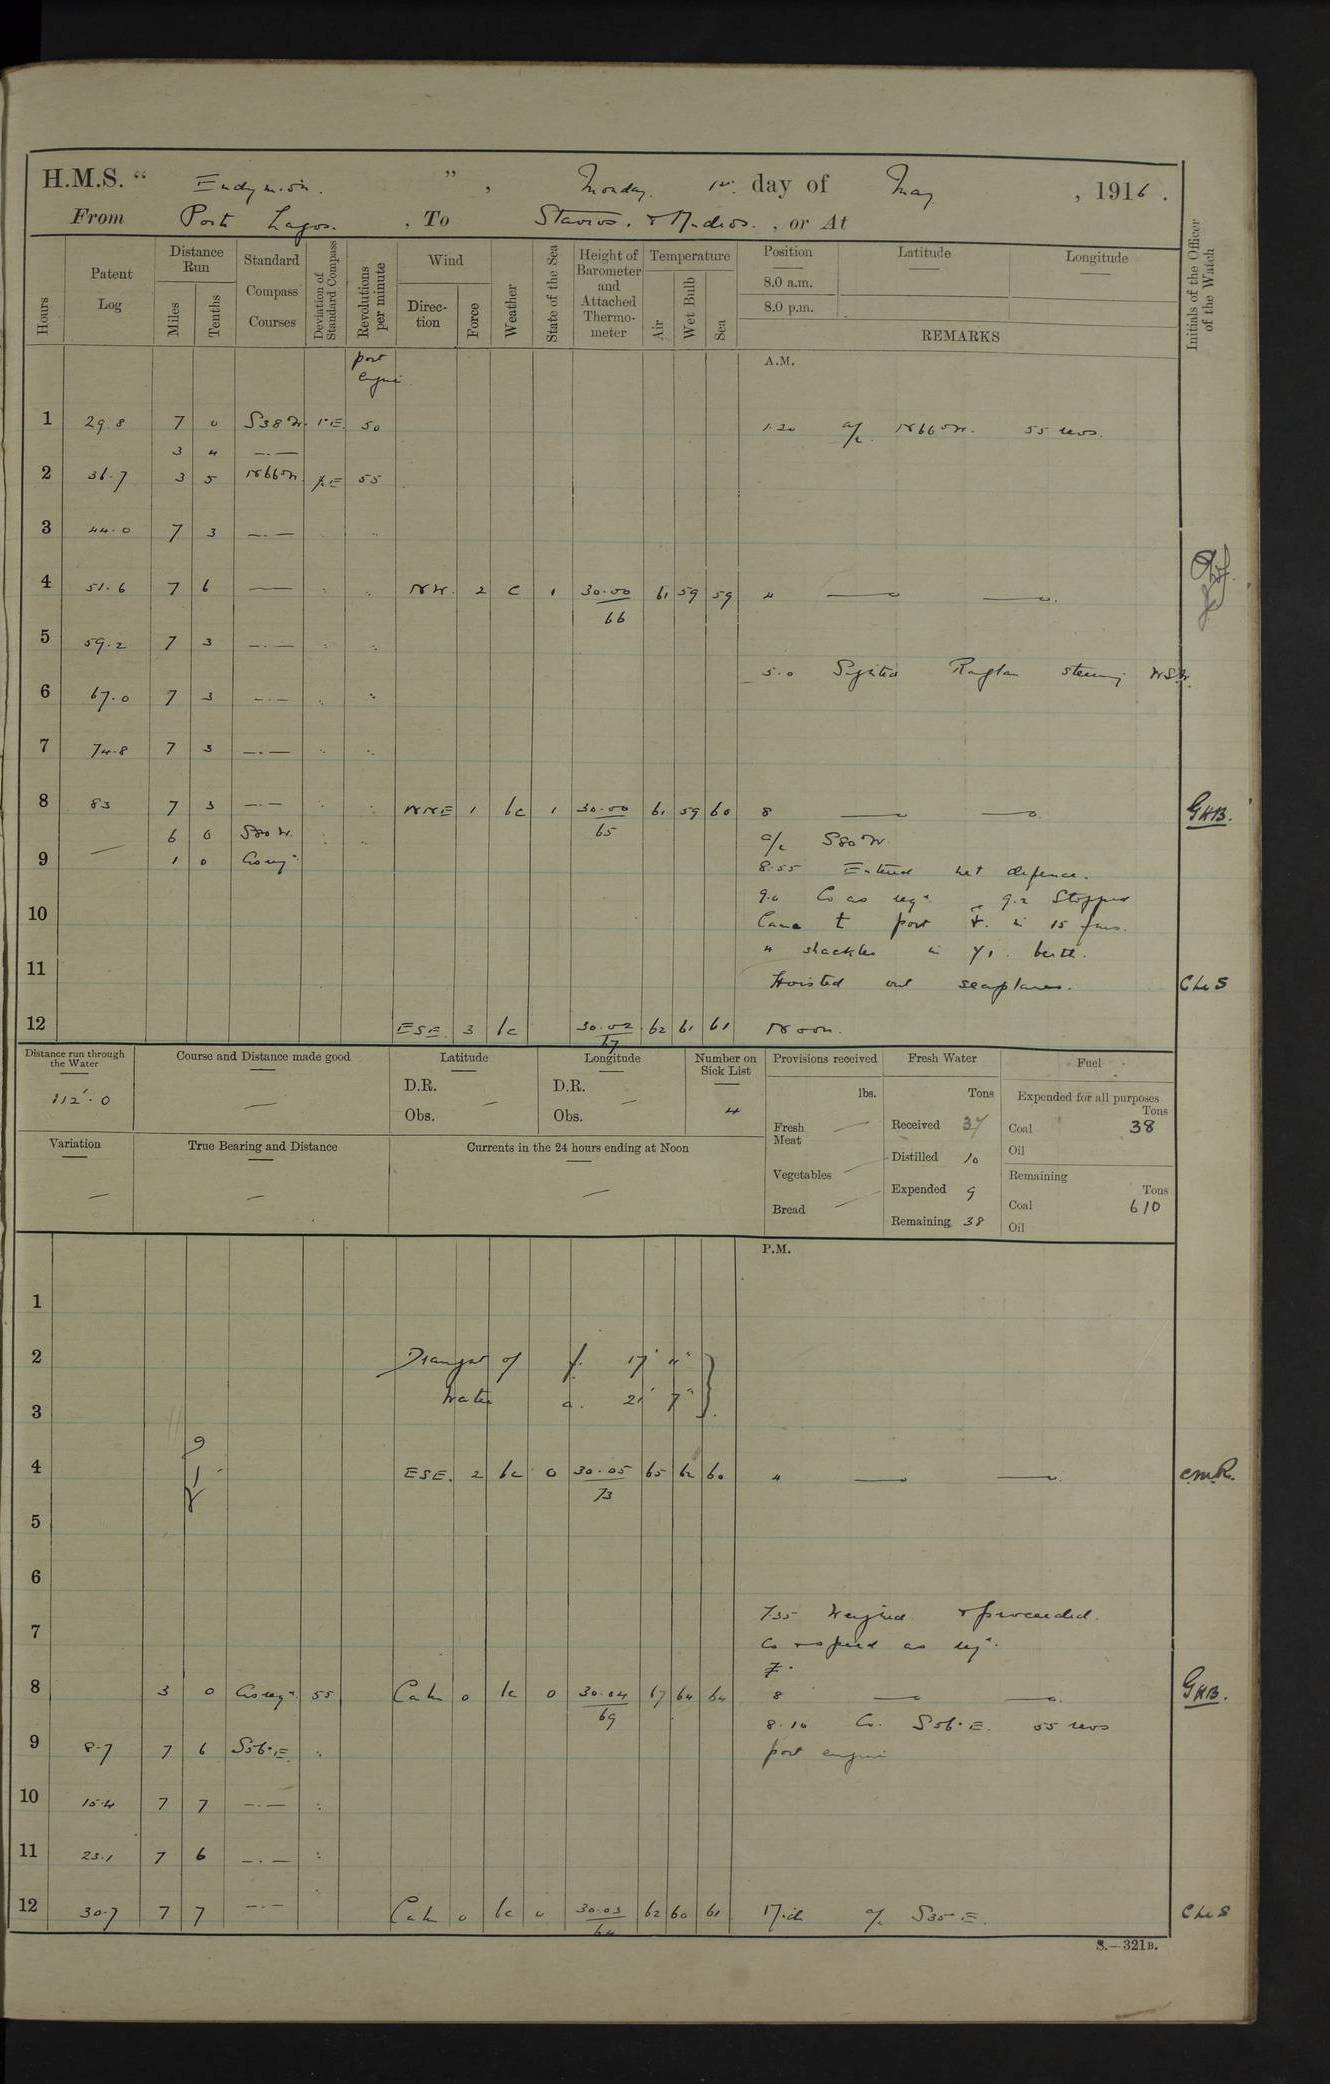 H.M.S. " Endymion. " , Monday. 1st. day of May , 1916 .
From Port Lagos. , To Stavros. & Mudros. , or At
Hours Patent Log Distance Run Miles Tenths Standard Compass Courses Deviation of Standard Compass Revolutions per minute Wind Direction Force Weather State of the Sea Height of Barometer and Attached Thermometer Temperature Air Wet Bulb Sea Position Latitude Longitude Initials of the Officer of the Watch
8.0 a.m.
8.0 p.m.
REMARKS
port engine A.M.
1 29.8 7 0 S38W. 1°E. 50 1.20 a/c N66W. 55 revs.
3 4 —.—
2 36.7 3 5 N66W 55
3 44.0 7 3 —.— "
4 51.6 7 6 —— " NW. 2 c 1 30.00/66 61 59 59 4 —— ——.
5 59.2 7 3 —.— "
5.0 Sighted Raglan steering WSW.
6 67.0 7 3 —.— "
7 74.8 7 3 —.— "
8 83 7 3 —.— NNE 1 bc 1 30.00/65 61 59 60 8 —— —— GHB.
6 0 S80W. a/c S80W.
9 — 1 0 Co reqd 8.55 Entered net defence.
9.0 Co as reqd 9.2 Stopped
10 Came t port ⚓. in 15 fms.
4 shackles in Y1. berth.
11 Hoisted out seaplanes. CLeS
12 ESE. 3 bc 30.02/67 62 61 61 Noon.
Distance run through the Water Course and Distance made good Latitude Longitude Number on Sick List Provisions received Fresh Water Fuel
112'.0 — D.R. Obs. — D.R. Obs. — 4 lbs. Tons Expended for all purposes Tons
Fresh Meat — Received 37 Coal 38
Variation True Bearing and Distance Currents in the 24 hours ending at Noon
Distilled 10 Oil
Vegetables — Remaining
— — — Expended 9 Tons
Bread — Remaining 38 Coal 610
Oil
P.M.
1
2 Draught of f. 17' 11"
3 Water a. 21' 7"
4 ESE. 2 bc 0 30.05/73 65 62 60 4 —— ——. CMR.
5
6
7.35 Weighed & proceeded.
7 Co & speed as reqd.
8 3 0 Co reqd. 55 Calm 0 bc 0 30.04/69 67 64 64 8 —— ——. GHB.
8.10 Co. S56°E. 55 revs
9 8.7 7 6 S56°E. " port engine
10 15.4 7 7 —.— "
11 23.1 7 6 —.— "
12 30.7 7 7 —.— Calm 0 bc 0 30.03/64 62 60 61 Mid a/c S35E. CLeS
S.—321B.